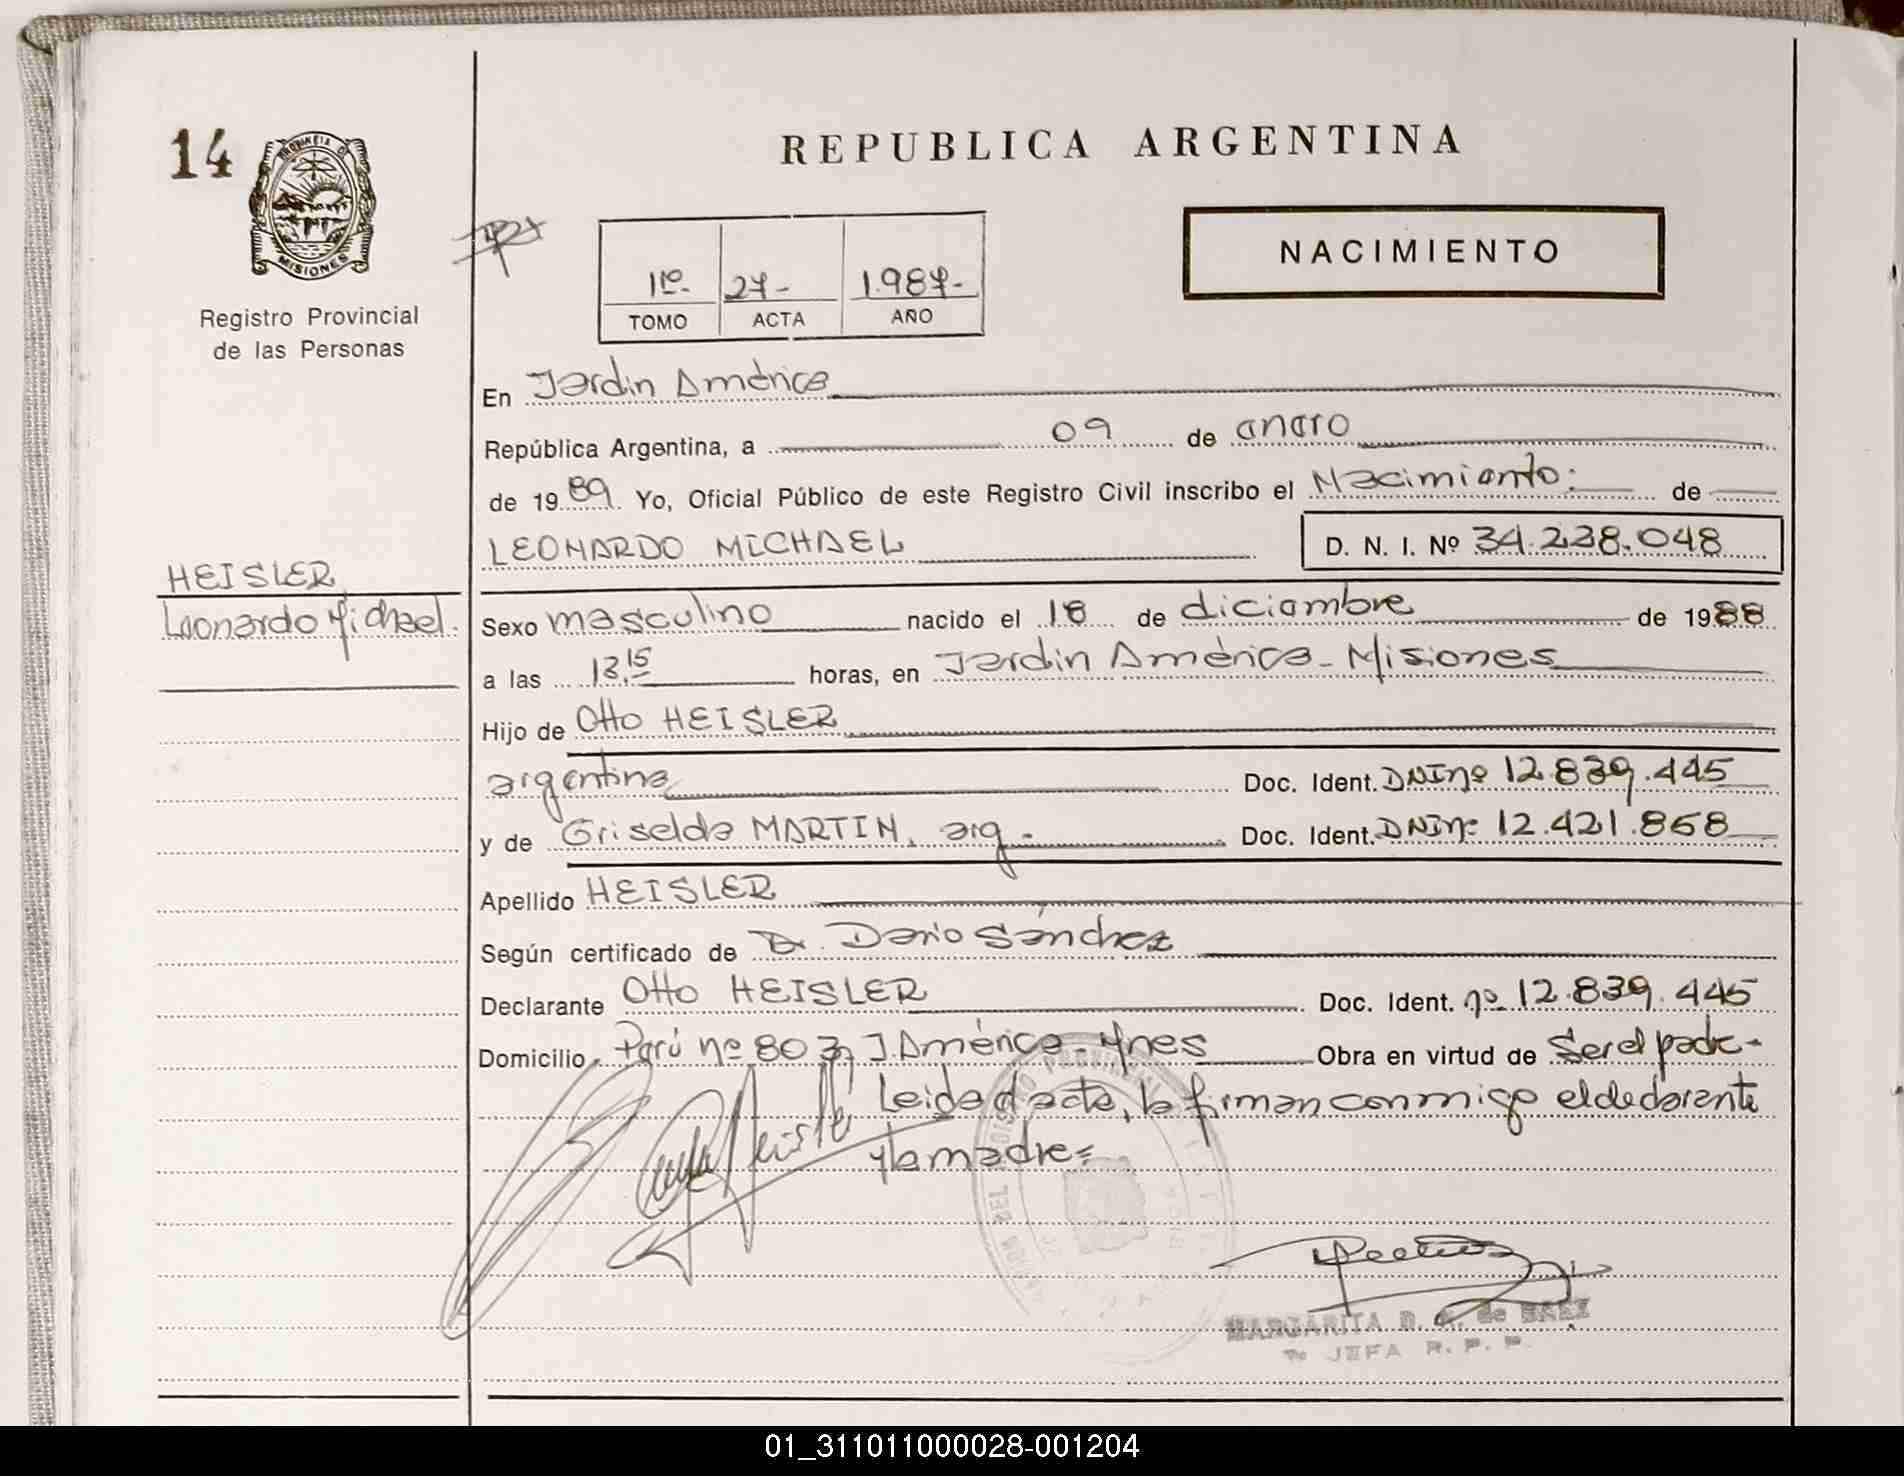 14
PROVINCIA DE
MISIONES
Registro Provincial
de las Personas
REPUBLICA ARGENTINA
NACIMIENTO
1ro.- 27- 1.989-
TOMO ACTA AÑO
En Jardin América
República Argentina, a 09 de enero
de 1989. Yo, Oficial Público de este Registro Civil inscribo el Nacimiento: de
LEONARDO MICHAEL D. N. I. Nº 34.238.048
HEISLER
Leonardo Michael.
Sexo masculino nacido el 18 de diciembre de 1988
a las 13,15 horas, en Jardin América - Misiones
Hijo de Otto HEISLER
argentina Doc. Ident. DNI nº 12.839.445
y de Griselda MARTIN, arg.- Doc. Ident. DNI nº 12.421.858
Apellido HEISLER
Según certificado de Dr. Dario Sánchez
Declarante Otto HEISLER Doc. Ident. nº 12.839.445
Domicilio Perú nº 803, J. América - Mnes Obra en virtud de Ser el padre-
Leida el acta, la firman conmigo el declarante
y la madre=
MARGARITA B. A. de BAEZ
JEFA R. P. P.
01_311011000028-001204